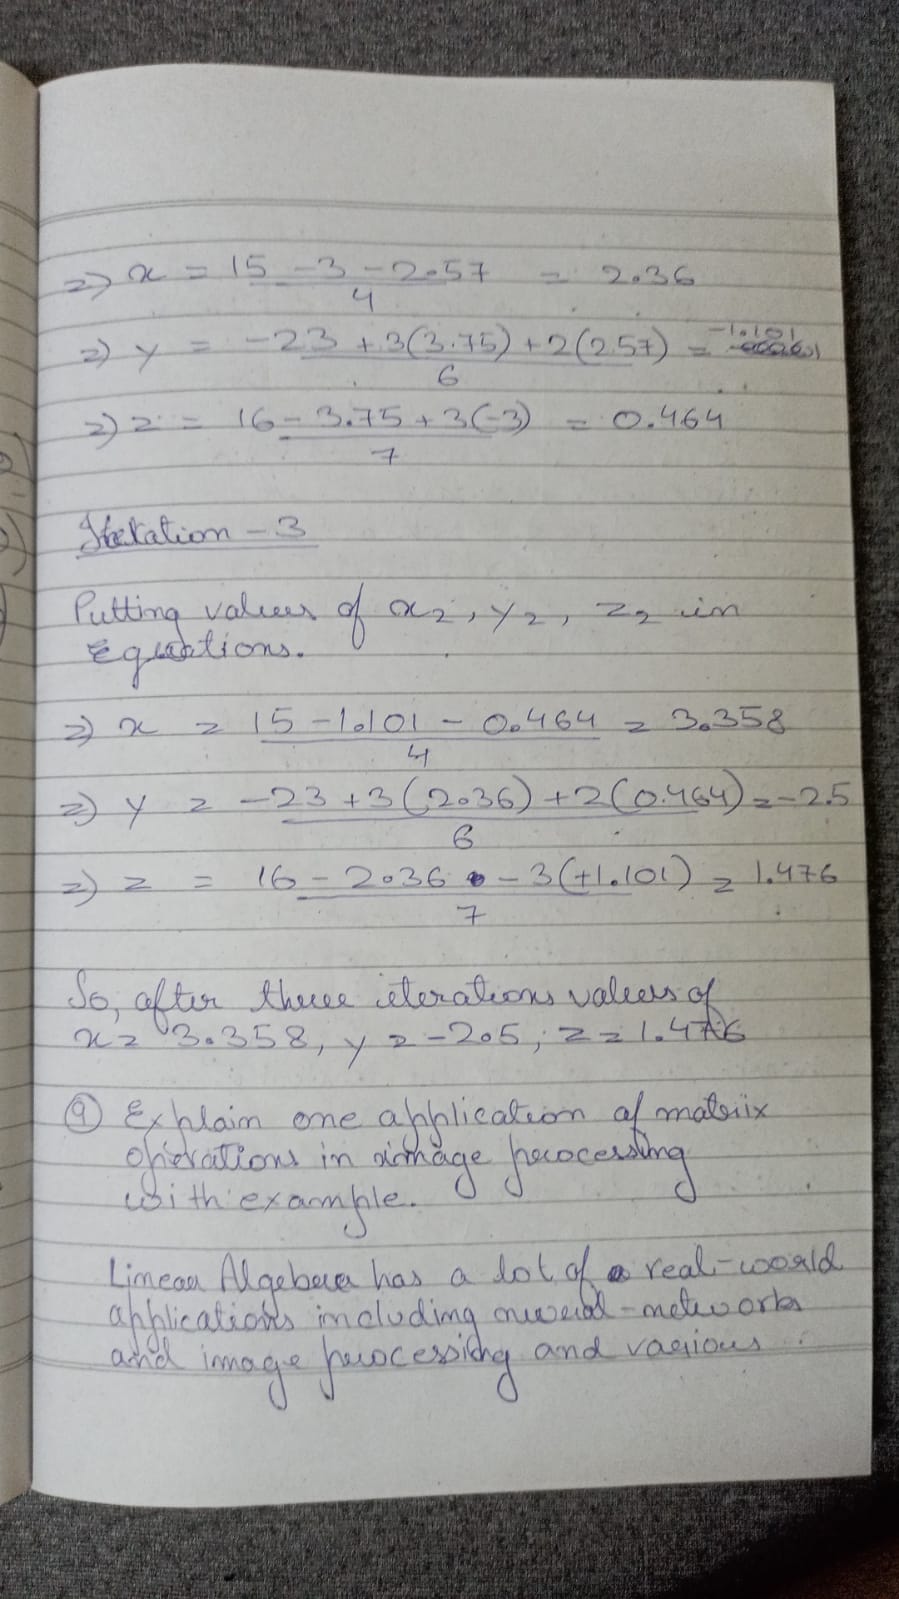 => x = 15 - 3 - 2.57 = 2.36
4
=> y = -23 + 3(3.75) + 2(2.57) = -1.101
6
=> z = 16 - 3.75 + 3(-3) = 0.464
7
Iteration - 3
Putting values of x2, y2, z2 in
Equations.
=> x = 15 - 1.101 - 0.464 = 3.358
4
=> y = -23 + 3(2.36) + 2(0.464) = -2.5
6
=> z = 16 - 2.36 - 3(+1.101) = 1.476
7
So, after three iterations values of
x = 3.358, y = -2.5, z = 1.476
9 Explain one application of matrix
operations in image processing
with example.
Linear Algebra has a lot of real-world
applications including neural-networks
and image processing and various